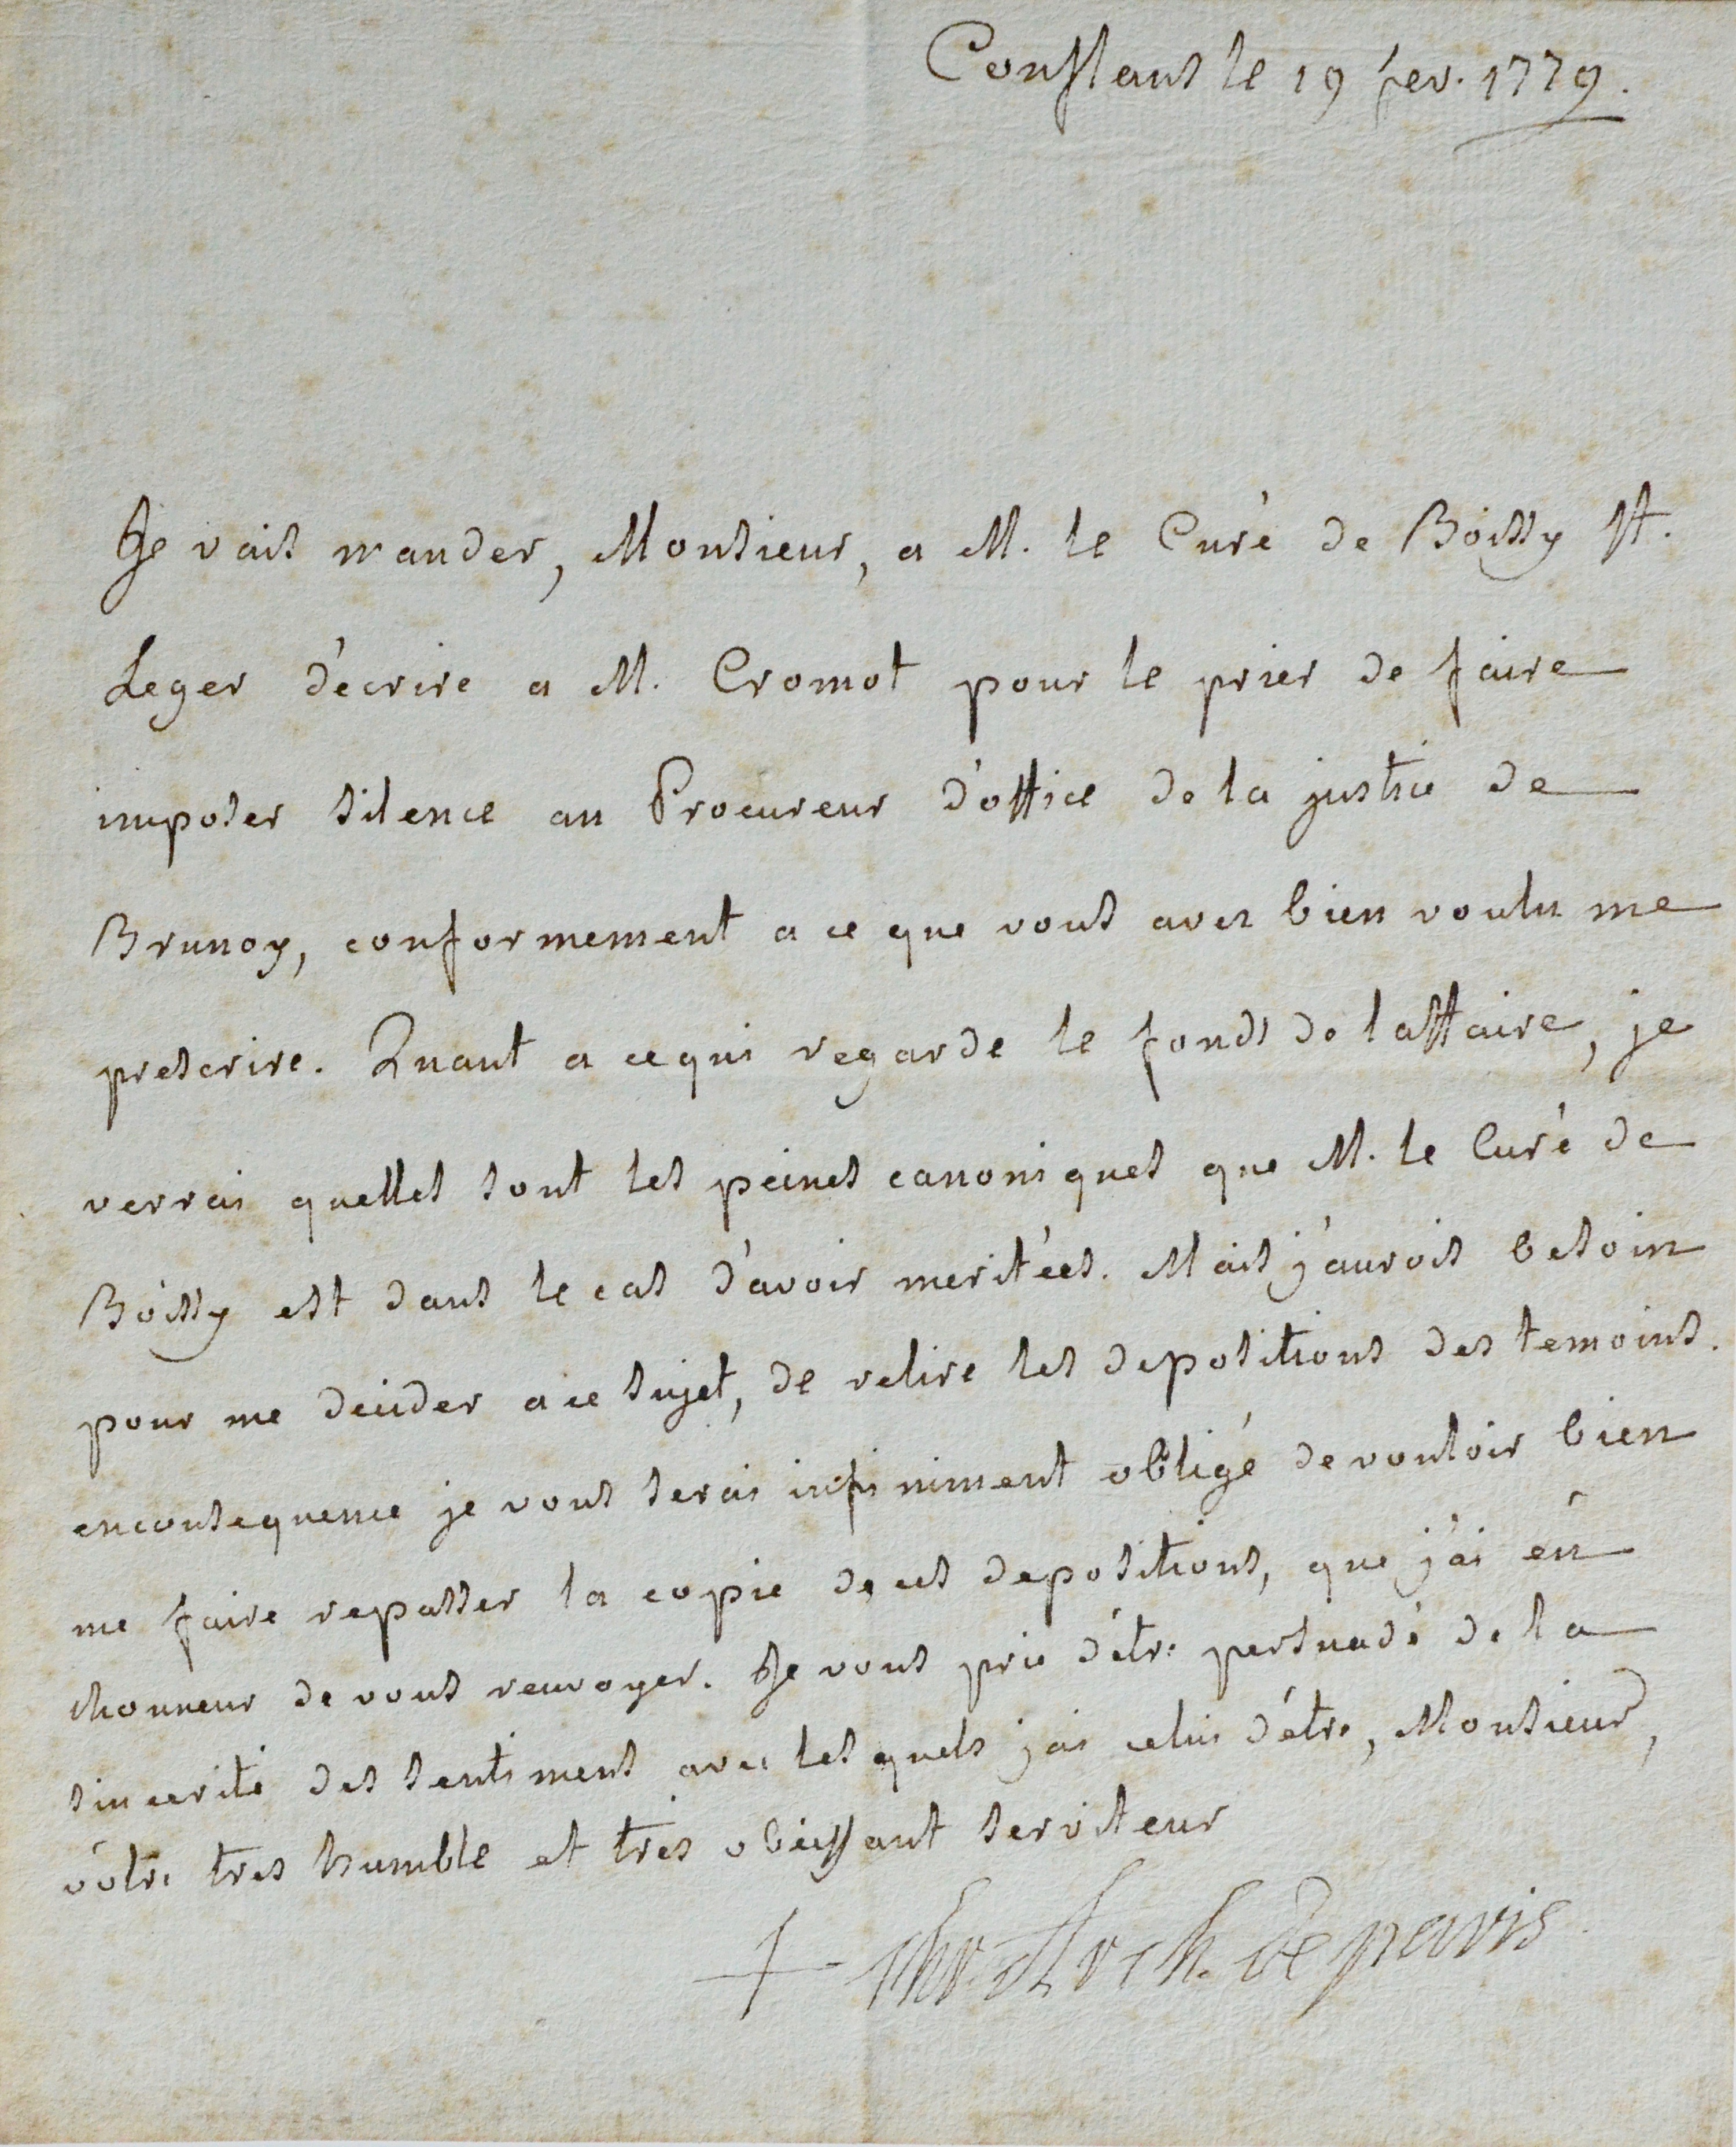 Conflans le 19 fev. 1779.
Je vais mander, Monsieur, a M. le Curé de Boissy St.
Leger d'ecrire a M. Cromot pour le prier de faire
imposer silence au Procureur d'office de la justice de
Brunoy, conformement a ce que vous avez bien voulu me
prescrire. Quant a ce qui regarde le fonds de l'affaire, je
verrai quelles sont les peines canoniques que M. le Curé de
Boissy est dans le cas d'avoir meritées. Mais j'aurois besoin
pour me decider a ce sujet, de relire les depositions des temoins.
en consequence je vous serai infiniment obligé de vouloir bien
me faire repasser la copie de ces depositions, que j'ai eü
l'honneur de vous renvoyer. Je vous prie d'étre persuadé de la
sincerité des sentiments avec lesquels j'ai celui d'étre, Monsieur,
vótre tres humble et tres obeissant serviteur
+ chr. Arch. de paris